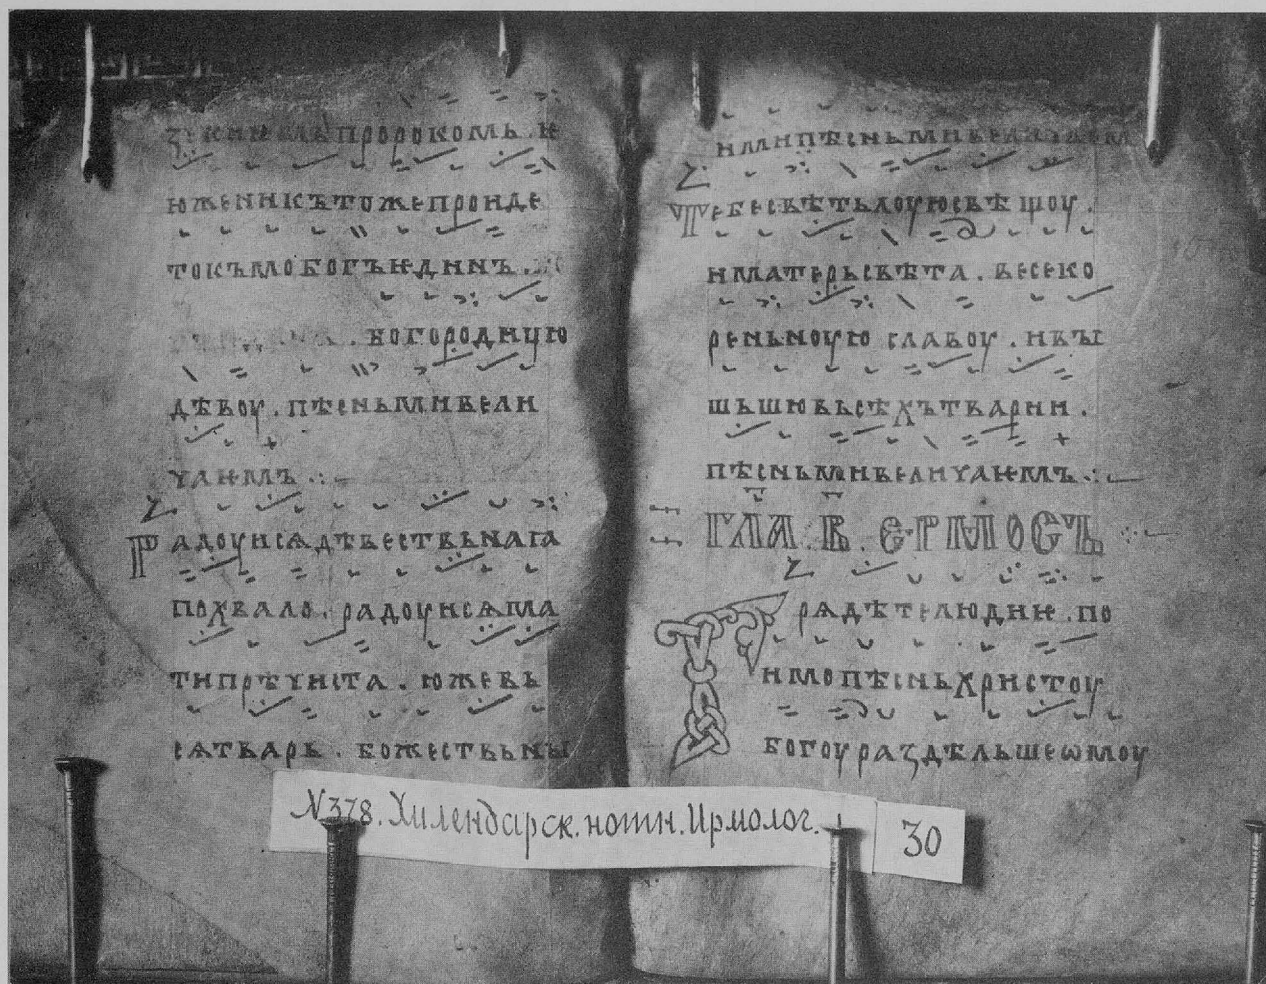 пророкомь · н
юженикътожепроиде
токъмобогъѥдинъ ·
богородицю
дѣвоу · пѣсньмивели
чаѥмъ ⁘
Радоуисѧдѣвествьнаꙗ
похвало · радоуисѧма
типрѣчиста · южевь
сѧтварь · божествьны
ими пѣсньми
Тебесвѣтьлоуюсвѣщоу ·
иматерьсвѣта · весеко
реньноую славоу · ивы
шьшювьсѣхътварии ·
пѣсньмивеличаѥмъ ⁘
ГЛА · В · ЕРМОСЪ
Грѧдѣтелюдиѥ · по
имопѣсньхристоу
богоураздѣльшеѡмоу
№ 378. Хилендарск. нотн. Ирмолог.
30